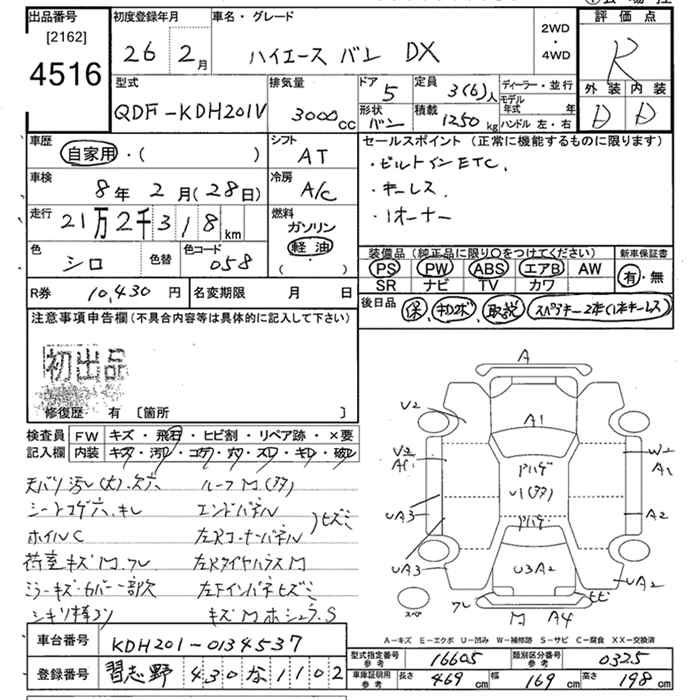 出品番号 初度登録年月 車名・グレード 評価点
[2162]
4516
26 2月 ハイエース バン DX 2WD・4WD R
外装 内装
D D
型式 排気量 ドア 定員 ディーラー・並行
QDF-KDH201V 3000cc 5 3(6)人 モデル年式 年
形状 バン 積載 1250kg ハンドル 左・右
車歴 シフト セールスポイント (正常に機能するものに限ります)
自家用・( ) AT ・ビルトインETC.
車検 冷房 ・キーレス
8年2月(28日) A/C ・1オーナー
走行 燃料
21万2千318km ガソリン 軽油 ( )
色 シロ 色替 色コード 058
装備品 (純正品に限り〇をつけてください) 新車保証書
PS PW ABS エアB AW 有・無
SR ナビ TV カワ
R券 10,430円 名変期限 月 日
後日品 保 取説 スペアキー2本(1本キーレス)
注意事項申告欄(不具合内容等は具体的に記入して下さい)
初出品
修復歴 有 〔箇所 〕
検査員 FW キズ・飛石・ヒビ割・リペア跡・×要
記入欄 内装 キズ・汚レ・コゲ・穴・スレ・キレ・破レ
天バリ汚レ(大)、欠穴 ルーフM(多)
シートコゲ穴、キレ エンドパネル
ホイルC 左Rコーナーパネル ヒズミ
荷室キズM、ワレ 左RタイヤハウスM
ミラーキズ・カバー一部欠 左下インパネヒズミ
キズM ホシュラ、S
A
U2 A1
U2 A1 アハゲ W2 A1
U1(多)
UA3 アハゲ A2
UA3 U3A2 UA2
スペア ワレ M A4 ヒビ
A－キズ E－エクボ U－凹み W－補修跡 S－サビ C－腐食 XX－交換済
車台番号 KDH201-0134537
登録番号 習志野 430 な 1102
型式指定番号 参考 16605 類別区分番号 参考 0325
車庫証明用 参考 長さ 469cm 幅 169cm 高さ 198cm